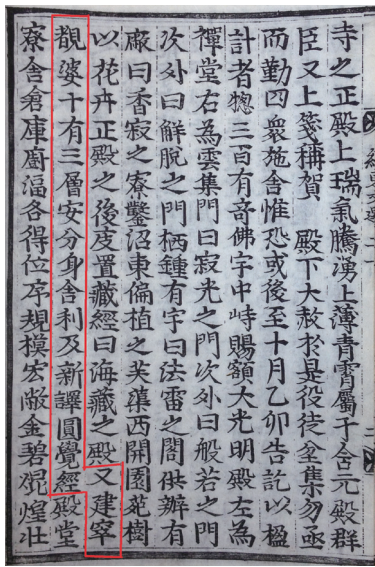 寺之正殿上瑞氣騰湧上薄青霄屬于含元殿群
臣又上箋稱賀 殿下大赦於是役徒坌集勿亟
而勤四衆施舍惟恐或後至十月乙卯告訖以楹
計者揔三百有奇佛宇中峙賜額大光明殿左為
禪堂右為雲集門曰寂光之門次外曰般若之門
次外曰解脫之門栖鍾有宇曰法雷之閣供辦有
廠曰香寂之寮鑿沼東偏植之芙蕖西開園苑樹
以花卉正殿之後庋置藏經曰海藏之殿又建窣
覩婆十有三層安分身舍利及新譯圓覺經殿堂
寮舍倉庫廚湢各得位序規模宏敞金碧焜煌壯